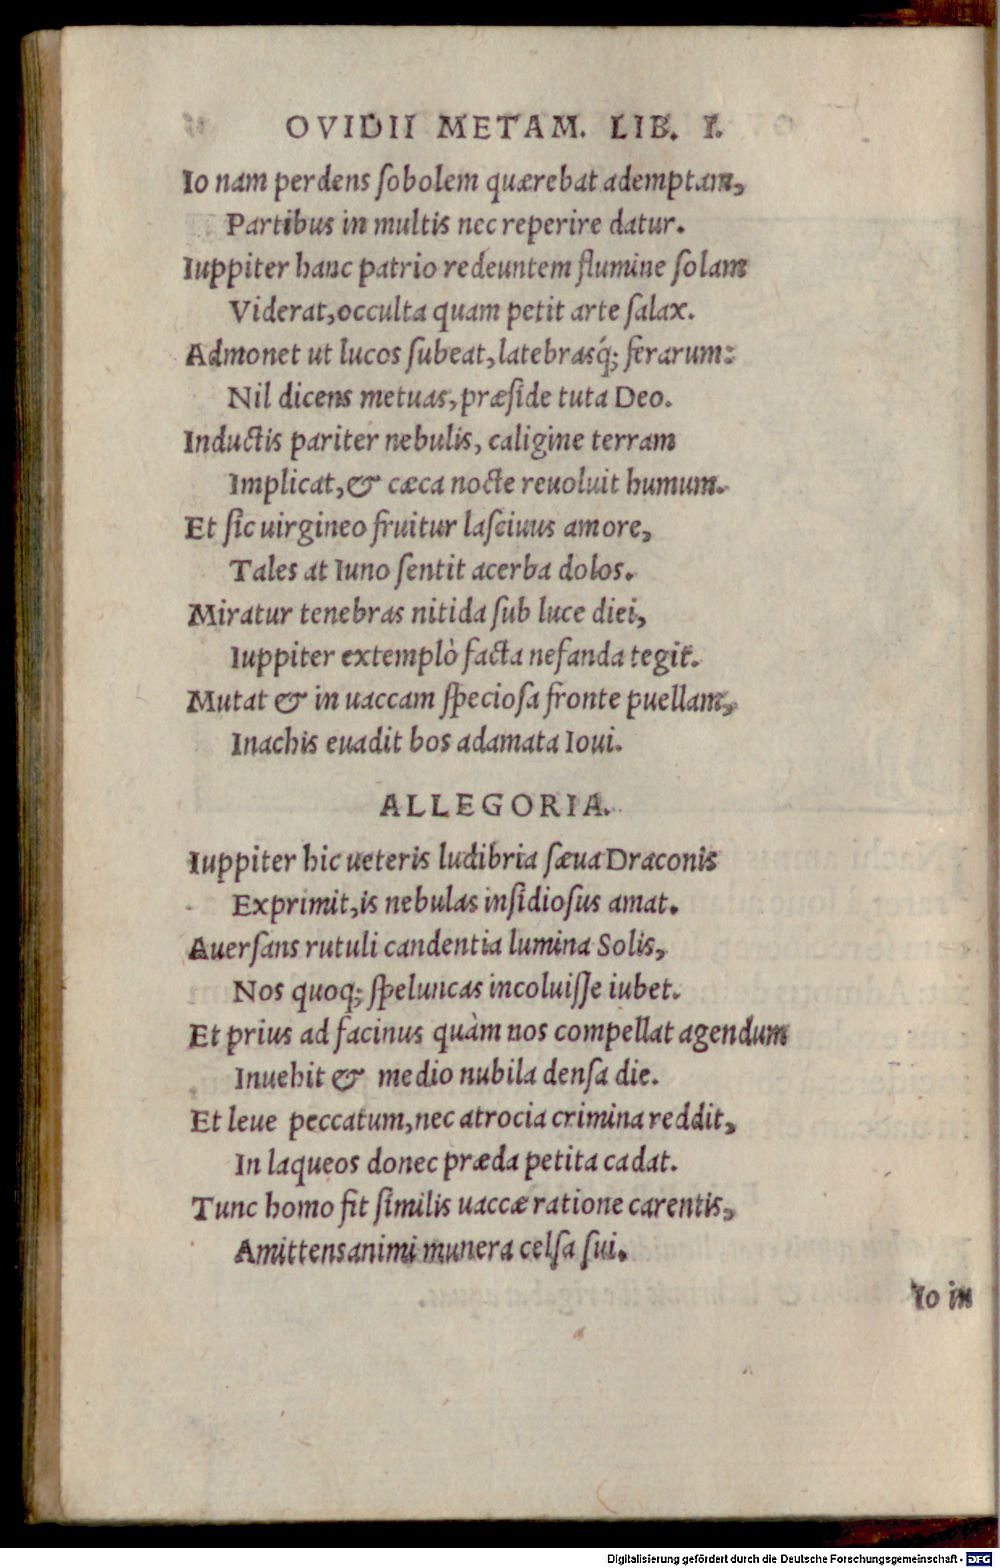 OVIDII METAM. LIB. I.
Io nam perdens ſobolem quærebat ademptam,
Partibus in multis nec reperire datur.
Iuppiter hanc patrio redeuntem flumine ſolam
Viderat, occulta quam petit arte ſalax.
Admonet ut lucos ſubeat, latebrasq́; ferarum:
Nil dicens metuas, præſide tuta Deo.
Inductis pariter nebulis, caligine terram
Implicat, & cæca nocte reuoluit humum.
Et ſic uirgineo fruitur laſciuus amore,
Tales at Iuno ſentit acerba dolos.
Miratur tenebras nitida ſub luce diei,
Iuppiter extemplò facta nefanda tegit.
Mutat & in uaccam ſpecioſa fronte puellam,
Inachis euadit bos adamata Ioui.
ALLEGORIA.
Iuppiter hic ueteris ludibria ſæua Draconis
Exprimit, is nebulas inſidioſus amat.
Auerſans rutuli candentia lumina Solis,
Nos quoq; ſpeluncas incoluiſſe iubet.
Et prius ad facinus quàm nos compellat agendum
Inuehit & medio nubila denſa die.
Et leue peccatum, nec atrocia crimina reddit,
In laqueos donec præda petita cadat.
Tunc homo fit ſimilis uaccæ ratione carentis,
Amittens animi munera celſa ſui.
Io in
Digitalisierung gefördert durch die Deutsche Forschungsgemeinschaft - DFG